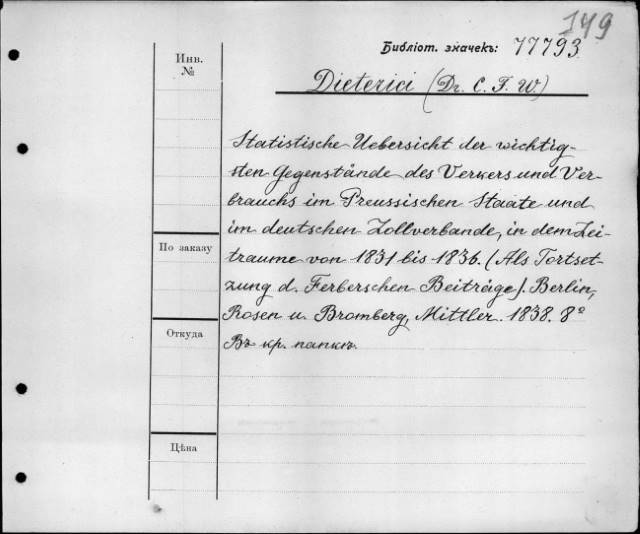 149
Библіот. значекъ: 77793
Инв.
№
Dieterici (Dr. C. F. W.)
Statistische Uebersicht der wichtig-
sten Gegenstände des Verkers und Ver-
brauchs im Preussischen Staate und
im deutschen Zollverbande, in dem Zei-
traume von 1831 bis 1836. (Als Fortset-
zung d. Ferberschen Beiträge). Berlin,
Posen u. Bromberg, Mittler. 1838. 8º
Въ кр. папкѣ.
По заказу
Откуда
Цѣна